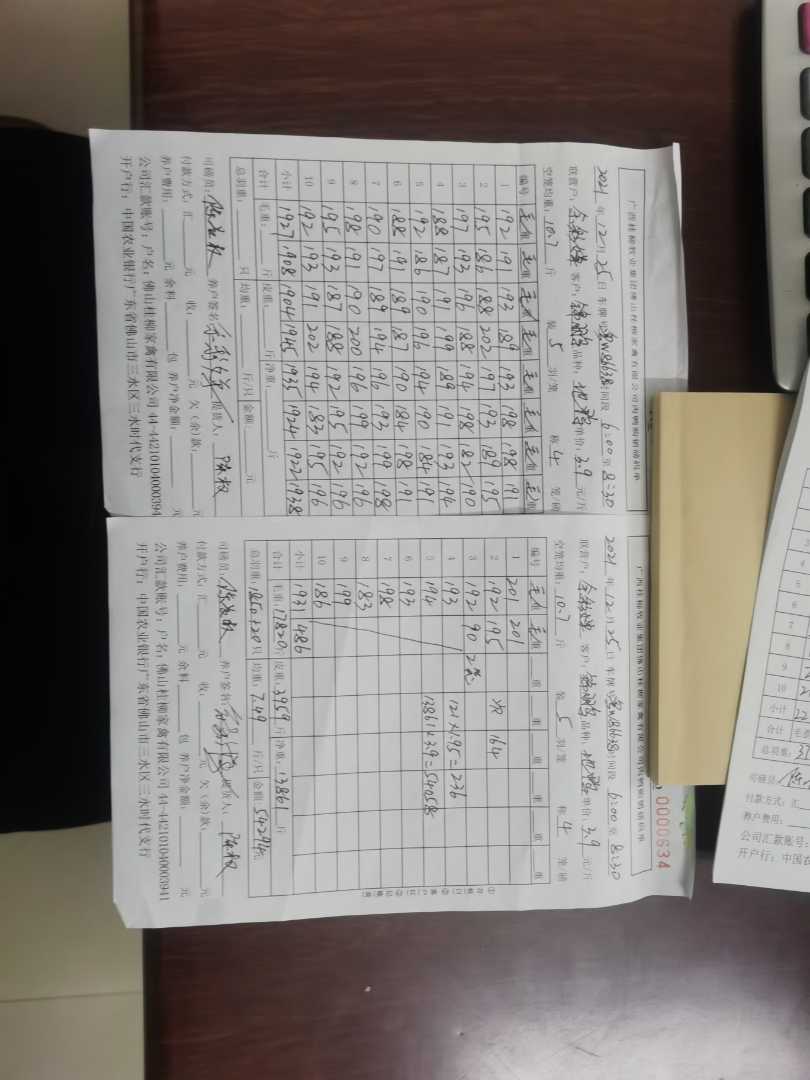 广西桂柳牧业集团佛山桂柳家禽有限公司肉鸭购销磅码单
2021 年 12 月 25 日 车牌号 W86638 时间段 6:00 至 8:30
联营户: 客户: 品种: 地鸭 单价: 3.9 元/斤
空笼均重: 10.7 斤 装 5 羽/笼 称 4 笼/磅
编号 毛重 毛重 毛重 毛重 毛重 毛重 毛重 毛重
1 192 191 193 189 193 198 198 191
2 195 186 188 202 197 193 189 195
3 197 193 196 188 194 198 182 190
4 188 187 191 199 189 191 193 194
5 192 186 190 196 194 190 184 191
6 188 191 189 187 190 184 198 191
7 190 197 189 194 196 193 199 198
8 198 191 190 200 196 199 192 196
9 195 193 187 188 192 195 192 196
10 192 193 191 202 194 183 195 196
小计 1927 1908 1904 1945 1935 1924 1922 1938
合计 毛重: 斤 皮重: 斤 净重: 斤
总羽重: 只 均重: 斤/只 金额: 元
司磅员: 养户签名: 提货人: 陈权
付款方式:汇 元 收: 元 欠(余)款: 元
养户费用: 元 余料 包 养户净金额: 元
公司汇款账号:户名:佛山桂柳家禽有限公司 44-44210104000394
开户行:中国农业银行广东省佛山市三水区三水时代支行
0000634
广西桂柳牧业集团佛山桂柳家禽有限公司肉鸭购销磅码单
2021 年 12 月 25 日 车牌号 W86638 时间段 6:00 至 8:30
联营户: 客户: 品种: 地鸭 单价: 3.9 元/斤
空笼均重: 10.7 斤 装 5 羽/笼 称 4 笼/磅
编号 毛重 毛重 重 重 重 重 重 重
1 201 201
2 192 195 164
3 192 90 2笼
4 193 121×1.95=236
5 194 13861×3.9=54058
6 193
7 198
8 183
9 199
10 186
小计 1931 486
合计 毛重: 17820 斤 皮重: 3959 斤 净重: 13861 斤
总羽重: 1850+20 只 均重: 7.49 斤/只 金额: 54294 元
司磅员: 养户签名: 提货人: 陈权
付款方式:汇 元 收: 元 欠(余)款: 元
养户费用: 元 余料 包 养户净金额: 元
公司汇款账号:户名:佛山桂柳家禽有限公司 44-442101040003941
开户行:中国农业银行广东省佛山市三水区三水时代支行
3
4
5
6
7
8
9
10
小计
合计 毛重
总羽重:
司磅员:
付款方式:汇
养户费用:
公司汇款账号:
开户行:中国农